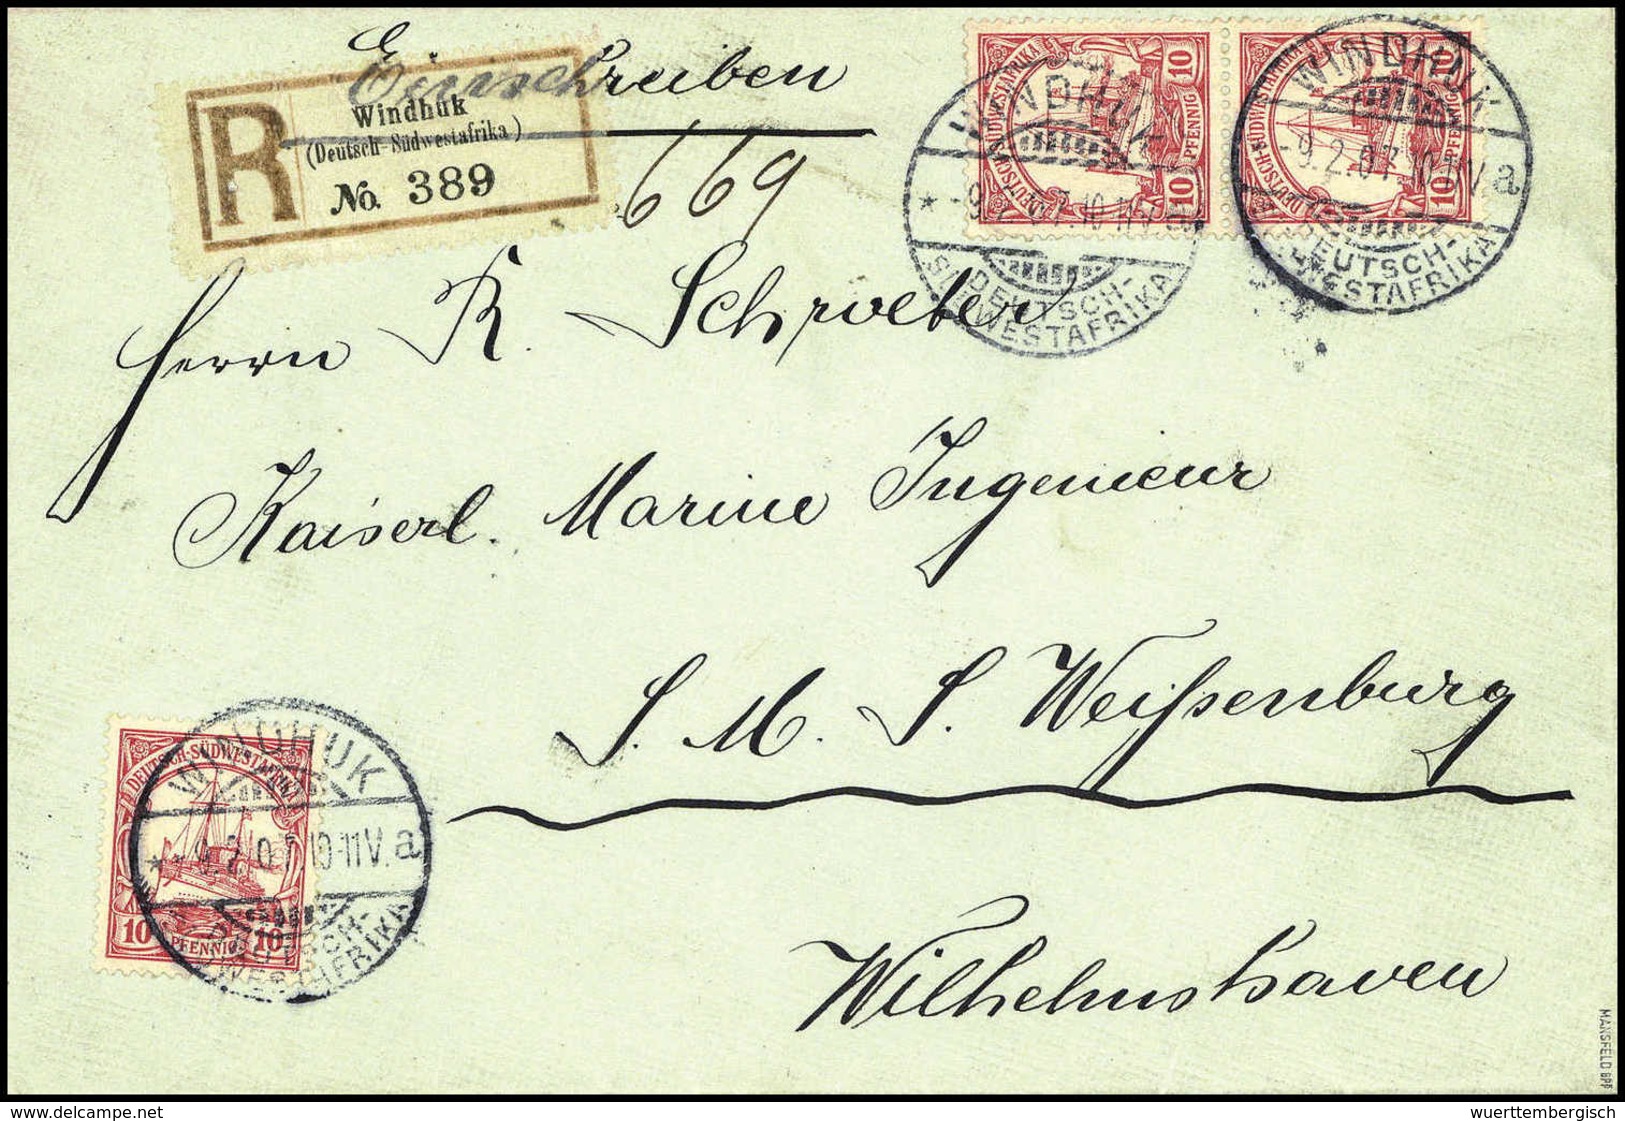 Einschreiben
R
Windhuk
(Deutsch-Südwestafrika)
No. 389
669
DEUTSCH-SÜDWESTAFRIKA
10 PFENNIG 10
DEUTSCH-SÜDWESTAFRIKA
10 PFENNIG 10
WINDHUK
DEUTSCH-
SÜDWESTAFRIKA
WINDHUK
-9.2.07.10-11V. a
DEUTSCH-
SÜDWESTAFRIKA
Herrn R. Schroeter
Kaiserl. Marine Ingenieur
S. M. S. Weißenburg
Wilhelmshaven
DEUTSCH-SÜDWESTAFRIKA
10 PFENNIG 10
WINDHUK
* -9.2.07.10-11V. a
DEUTSCH-
SÜDWESTAFRIKA
MANSFELD BPP
delcampe.net
wuerttembergisch